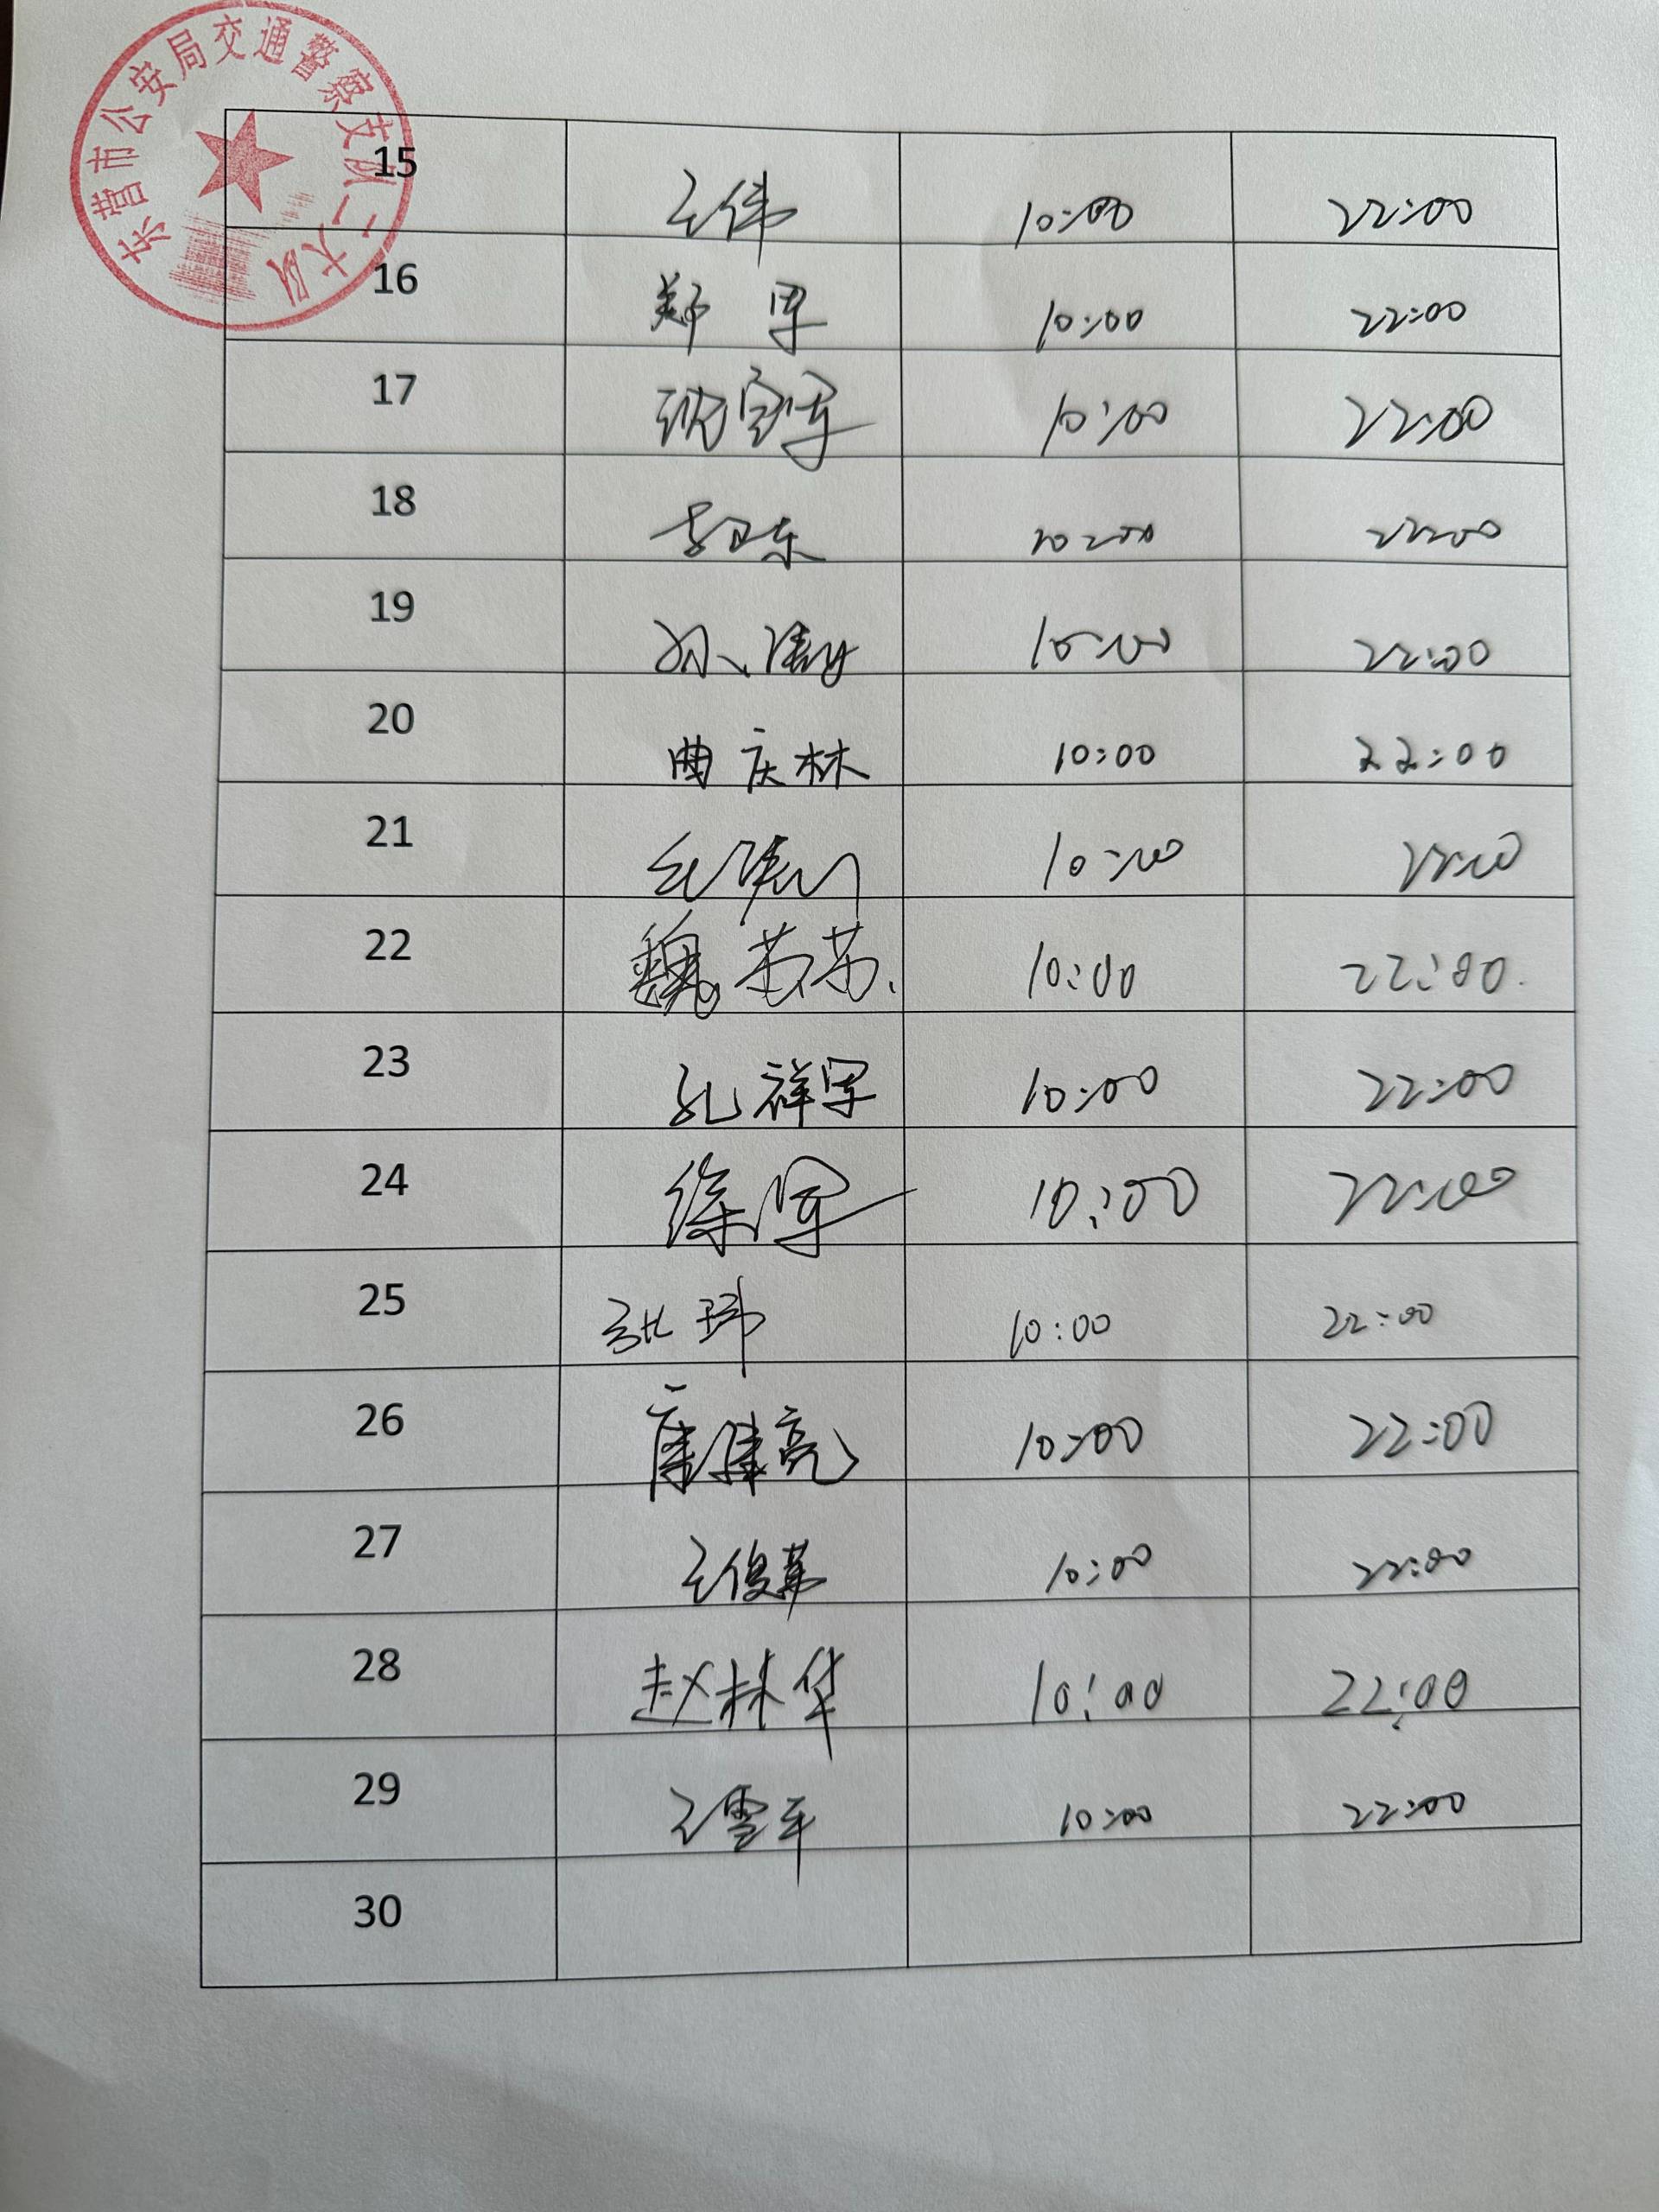 东营市公安局交通警察支队二大队
15 王伟 10:00 22:00
16 郑军 10:00 22:00
17 10:00 22:00
18 李卫东 10:00 22:00
19 孙 10:00 22:00
20 曲庆林 10:00 22:00
21 10:00 22:00
22 魏苦苦 10:00 22:00
23 孔祥军 10:00 22:00
24 徐军 10:00 22:00
25 张玮 10:00 22:00
26 亮 10:00 22:00
27 王俊 10:00 22:00
28 赵林华 10:00 22:00
29 王雪平 10:00 22:00
30